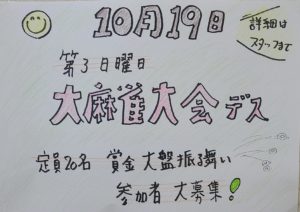 10月19日
詳細は
スタッフまで
第3日曜日
大麻雀大会デス
定員20名 賞金大盤振る舞い
参加者 大募集!